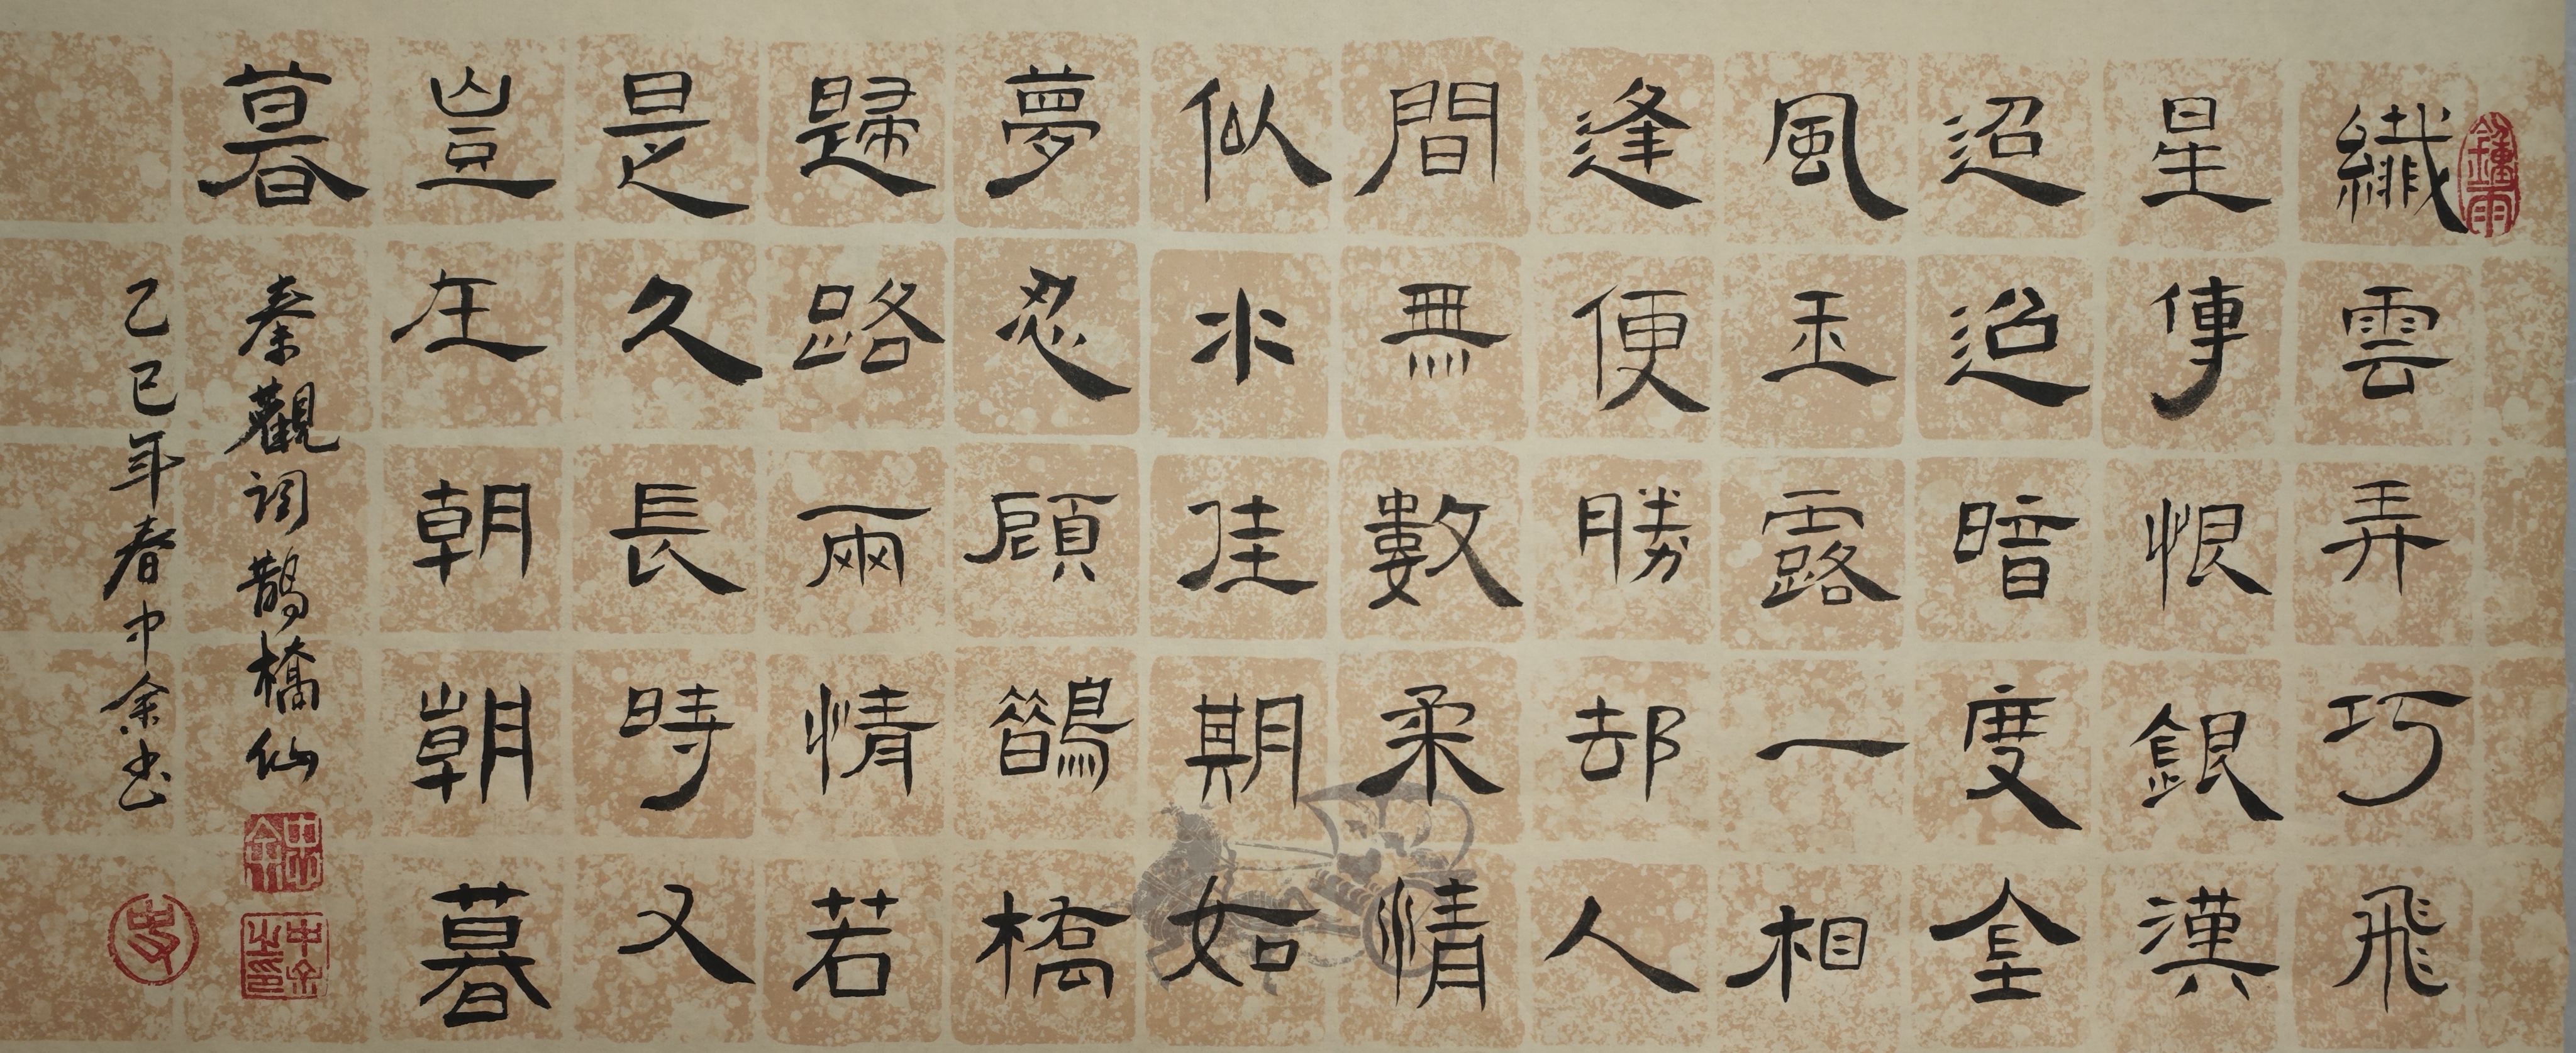 纖雲弄巧飛
星傳恨銀漢
迢迢暗度金
風玉露一相
逢便勝却人
間無數柔情
似水佳期如
夢忍顧鵲橋
歸路兩情若
是久長時又
豈在朝朝暮
暮
秦觀词鵲橋仙
乙巳年春中余书
中余之印